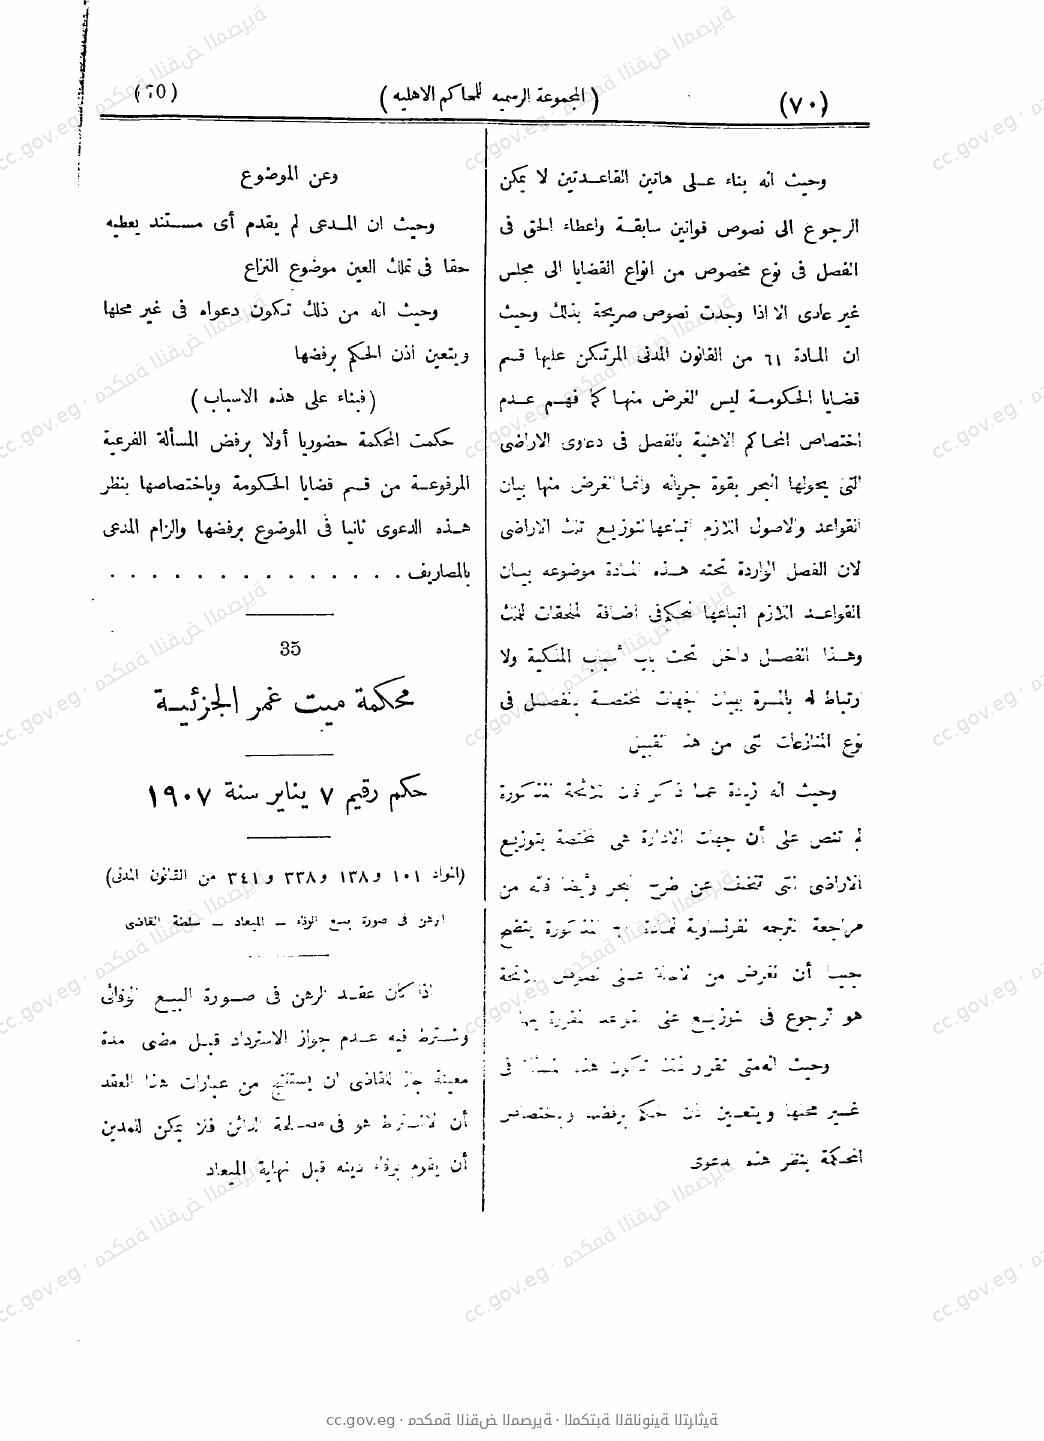 (٧٠)
(المجموعة الرسميه للمحاكم الاهليه)
(70)
وحيث انه بناء عـلى هاتين القاعـدتين لا يمكن
الرجوع الى نصوص قوانين سابقـة واعطاء الحق فى
الفصل فى نوع مخصوص من انواع القضايا الى مجلس
غير عادى الا اذا وجدت نصوص صريحة بذلك وحيث
ان المادة ٦١ من القانون المدنى المرتكن عليها قسم
قضايا الحكومـة ليس الغرض منهـا كما فهـم عـدم
اختصاص المحاكم الاهلية بالفصل فى دعاوى الاراضى
التى يحولها البحر بقوة جريانه وانما الغرض منها بيان
القواعد والاصول اللازم اتباعها لتوزيـع تلك الاراضى
لان الفصل الواردة تحته هـذه المادة موضوعه بيـان
القواعـد اللازم اتباعها للحكم فى اضـافة الملحقات للملك
وهـذا الفصـل داخل تحت باب أسباب الملكية ولا
ارتباط له بالمـرة ببيان الجهات المختصـة بالفصـل فى
نوع المنازعات التى من هذا القبيل
وحيث انه زيادة عما ذكر فان اللائحة المذكورة
لم تنص على أن جهات الادارة هى المختصة بتوزيع
الاراضى التى تتخلف عن طرح البحر وأيضا فانه من
مراجعة الترجمه الفرنساوية للمادة ٦١ المذكورة يتضح
جليـا أن الغرض من الاحالة عـلى نصوص اللائحة
هو الرجوع فى التوزيـع على القواعد المقررة بها
وحيث انه متى تقرر ذلك تكون هذه المسألة فى
غـير محلها ويتعـين اذن الحكم برفضها وباختصاص
المحكمة بنظر هذه الدعوى
وعن الموضوع
وحيث ان المـدعى لم يقدم أى مسـتند يعطيه
حقا فى تملك العين موضوع النزاع
وحيث انه من ذلك تـكون دعواه فى غير محلها
ويتعين اذن الحكم برفضها
(فبناء على هذه الاسباب)
حكمت المحكمة حضوريا أولا برفض المسألة الفرعية
المرفوعـة من قسم قضايا الحكومة وباختصاصها بنظر
هـذه الدعوى ثانيا فى الموضوع برفضها والزام المدعى
بالمصاريف . . . . . . . . . . . . . .
35
محكمة ميت غمر الجزئيـة
حكم رقيم ٧ يناير سنة ١٩٠٧
(المواد ١٠١ و١٣٨ و٣٣٨ و٣٤١ من القانون المدنى)
الرهن فى صورة بيـع الوفاء – الميعاد – سلطة القاضى
اذا كان عقـد الرهن فى صـورة البيـع الوفائى
واشـترط فيه عـدم جواز الاسترداد قبـل مضى مدة
معينة جاز للقاضى ان يستنتج من عبارات هذا العقد
أن الاشـتراط هو فى مصـلحة الدائن فلا يمكن للمدين
أن يقوم بوفاء دينه قبل نهاية الميعاد
cc.gov.eg · محكمة النقض المصرية · المكتبة القانونية التراثية